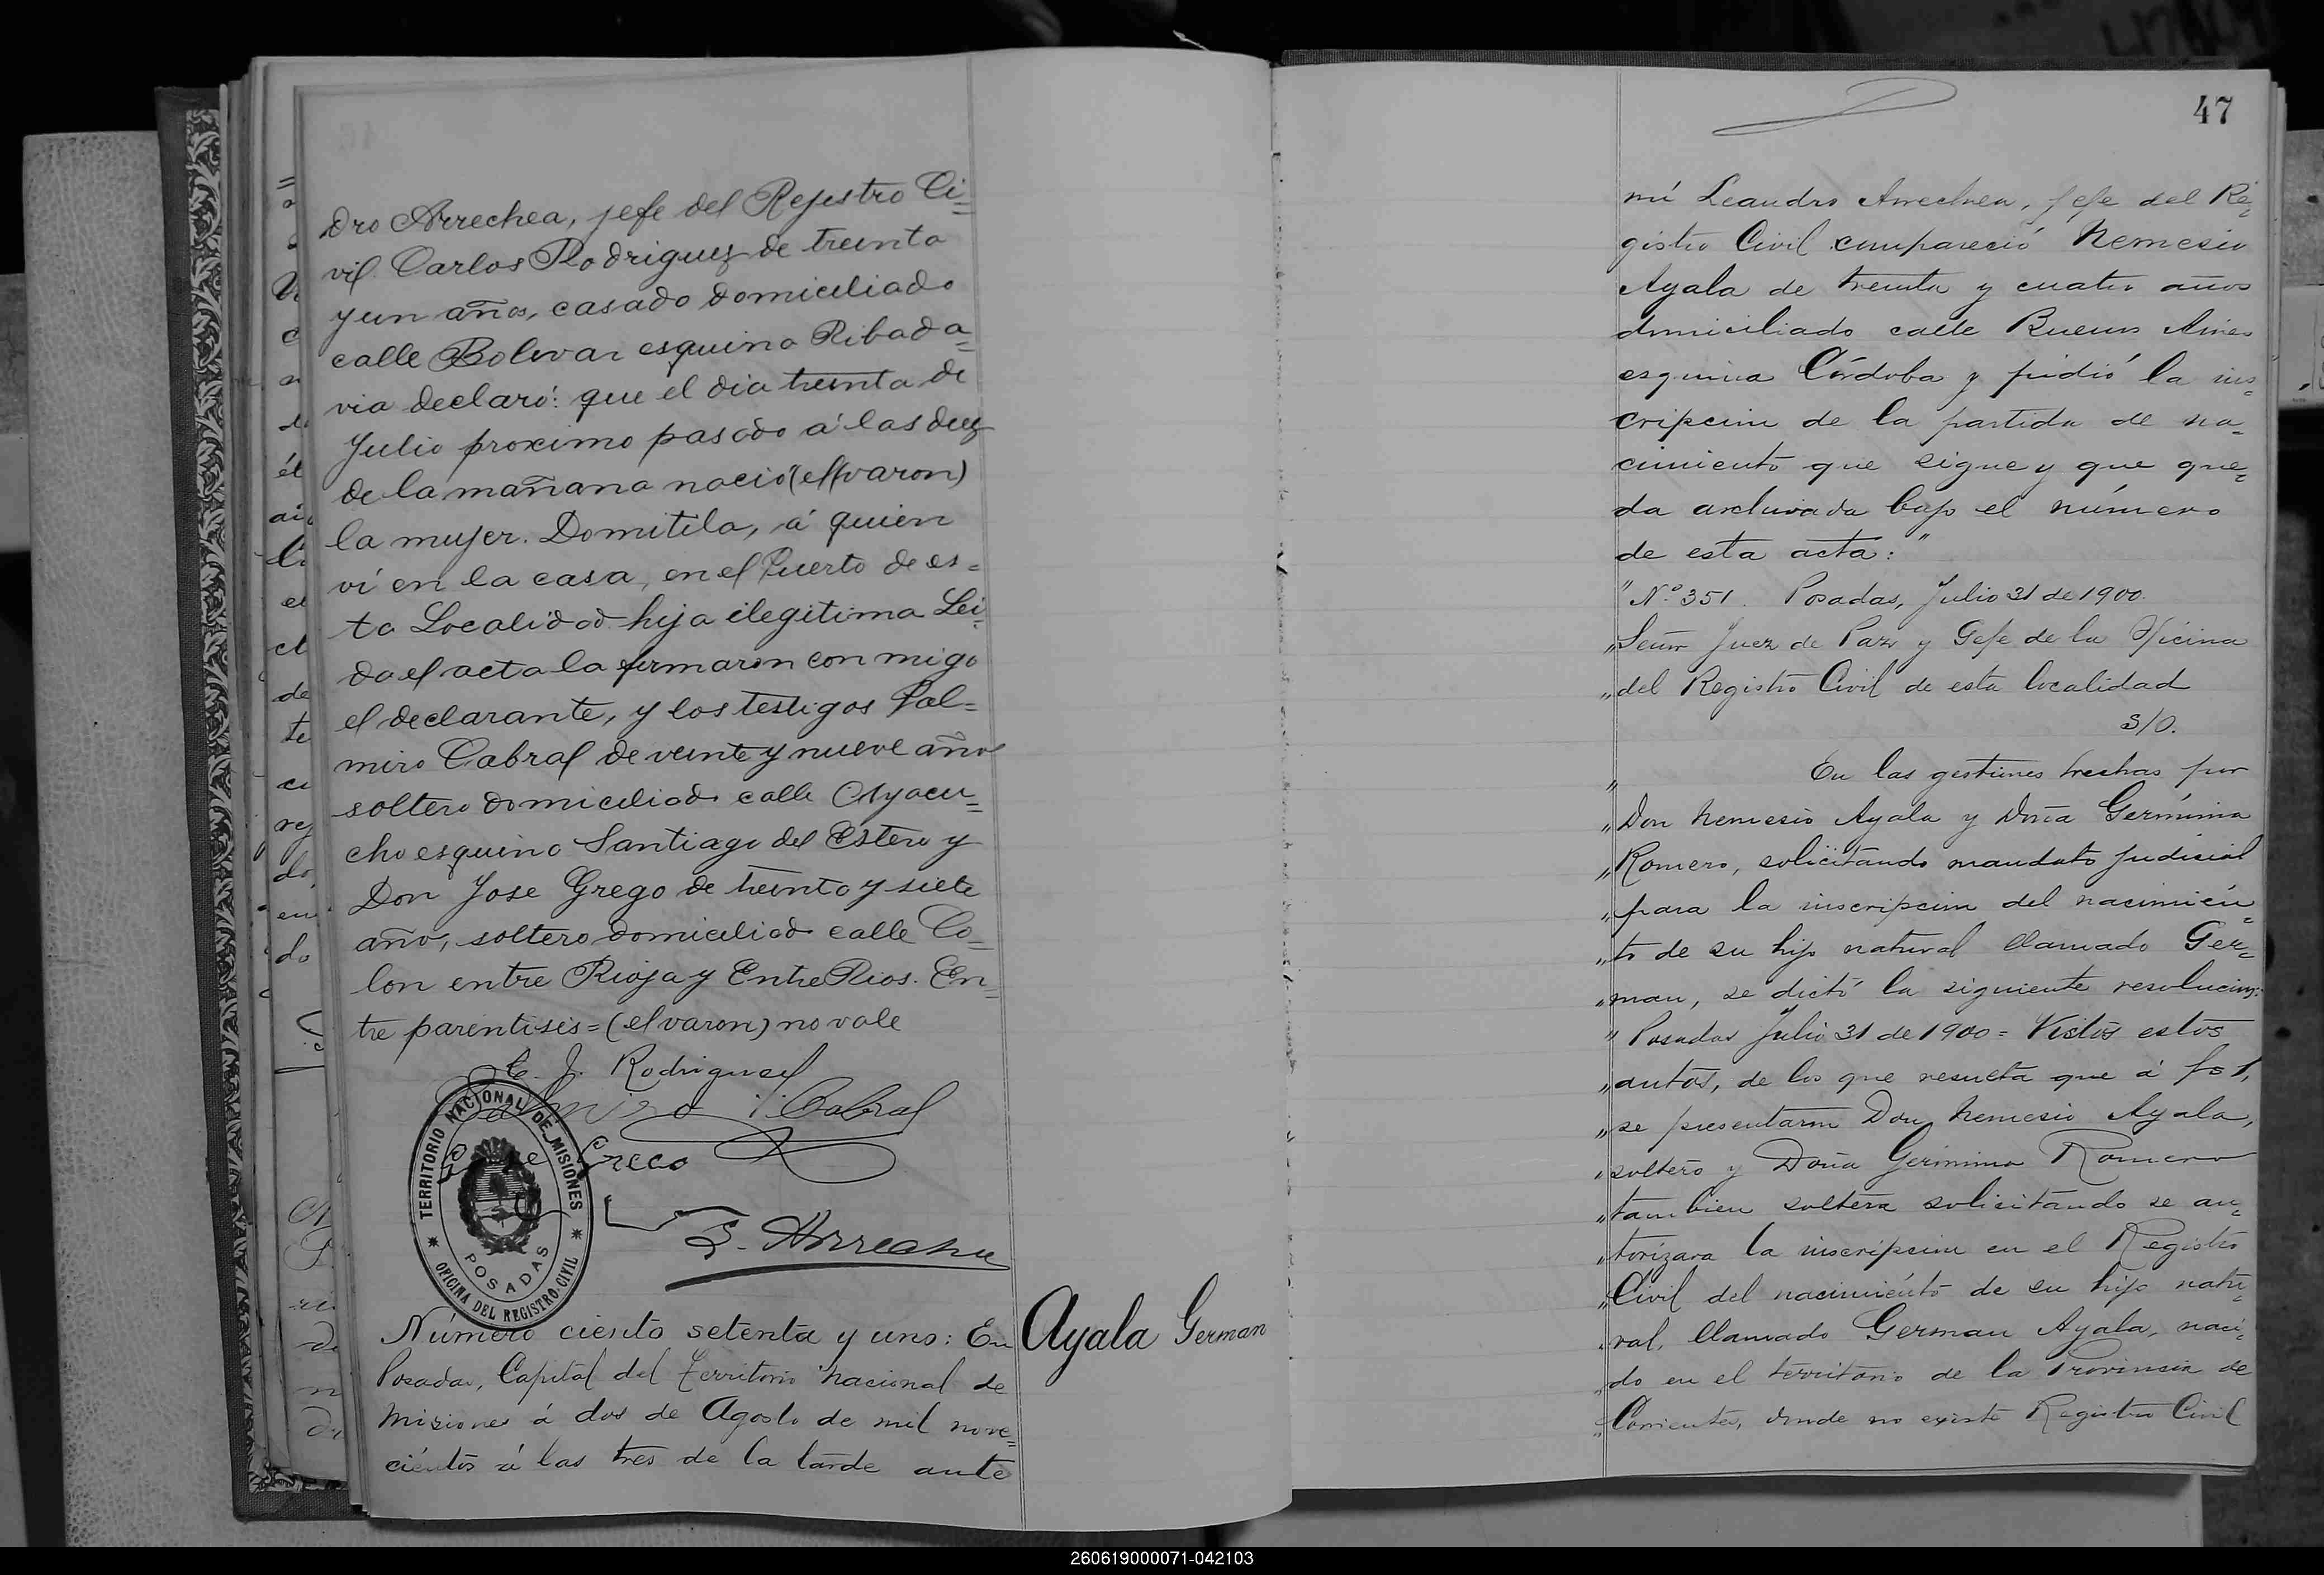 Dro Arrechea, jefe del Rejistro Ci=
vil. Carlos Rodriguez de treinta
y un años, casado domiciliado
calle Bolivar esquina Ribada=
via declaró: que el dia treinta de
Julio proximo pasado á las diez
de la mañana nació (el varon)
la mujer. Domitila, á quien
ví en la casa, en el Puerto de es=
ta Localidad hija ilegitima Lei=
da el acta la firmaron con migo
el declarante, y los testigos Pal=
miro Cabral de veinte y nueve años
soltero domiciliado calle Ayacu=
cho esquina Santiago del Estero y
Don Jose Grego de treinta y siete
año, soltero domiciliado calle Co=
lon entre Rioja y Entre Rios. En=
tre parentisis = (el varon) no vale
C. J. Rodriguez
Palmiro Cabral
Jose Greco
L. Arrechea
TERRITORIO NACIONAL DE MISIONES
POSADAS
OFICINA DEL REGISTRO CIVIL
Número ciento setenta y uno: En
Ayala German
Posadas, Capital del Territorio Nacional de
Misiones á dos de Agosto de mil nove=
cientos á las tres de la tarde ante
47
mí Leandro Arrechea, Jefe del Re=
gistro Civil compareció Nemesio
Ayala de treinta y cuatro años
domiciliado calle Buenos Aires
esquina Córdoba y pidió la ins=
cripcion de la partida de na=
cimiento que sigue y que que=
da archivada bajo el número
de esta acta: "
" Nº 351. Posadas, Julio 31 de 1900.
„Señor Juez de Paz y Gefe de la Oficina
„del Registro Civil de esta localidad
S/O.
„ En las gestiones hechas por
„Don Nemesio Ayala y Doña Germina
„Romero, solicitando mandato judicial
„para la inscripcion del nacimien=
„to de su hijo natural llamado Ger=
„man, se dictó la siguiente resolucion:
" Posadas Julio 31 de 1900 = Vistos estos
„autos, de los que resulta que á fs 1,
„se presentaron Don Nemesio Ayala,
„soltero y Doña Germina Romero
„tambien soltera solicitando se au=
„torizara la inscripcion en el Registro
„Civil del nacimiento de su hijo natu=
„ral, llamado German Ayala, naci=
„do en el territorio de la Provincia de
„Corrientes, donde no existe Registro Civil
260619000071-042103